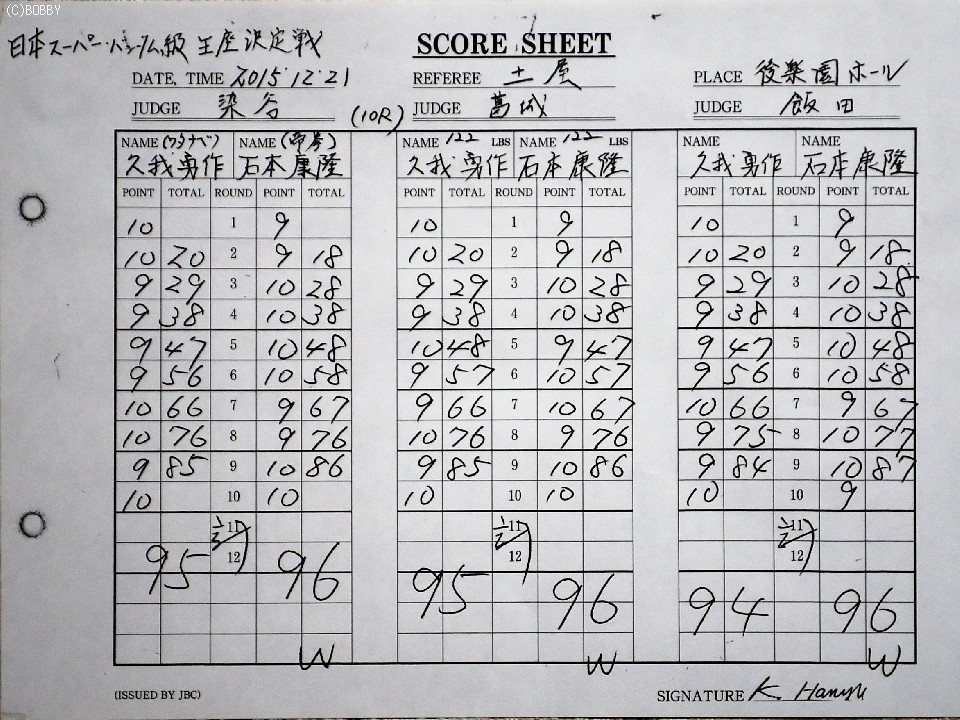 (C)BOBBY
日本スーパー・バンタム級 王座決定戦
SCORE SHEET
DATE, TIME 2015.12.21 REFEREE 土屋 PLACE 後楽園ホール
JUDGE 染谷 (10R) JUDGE 葛城 JUDGE 飯田
NAME (ワタナベ) NAME (帝拳) NAME 122 LBS NAME 122 LBS NAME NAME
久我勇作 石本康隆 久我勇作 石本康隆 久我勇作 石本康隆
POINT TOTAL ROUND POINT TOTAL POINT TOTAL ROUND POINT TOTAL POINT TOTAL ROUND POINT TOTAL
10 1 9 10 1 9 10 1 9
10 20 2 9 18 10 20 2 9 18 10 20 2 9 18
9 29 3 10 28 9 29 3 10 28 9 29 3 10 28
9 38 4 10 38 9 38 4 10 38 9 38 4 10 38
9 47 5 10 48 10 48 5 9 47 9 47 5 10 48
9 56 6 10 58 9 57 6 10 57 9 56 6 10 58
10 66 7 9 67 9 66 7 10 67 10 66 7 9 67
10 76 8 9 76 10 76 8 9 76 9 75 8 10 77
9 85 9 10 86 9 85 9 10 86 9 84 9 10 87
10 10 10 10 10 10 10 10 9
計 11 計 11 計 11
12 12 12
95 96 95 96 94 96
W W W
(ISSUED BY JBC) SIGNATURE K. Hanyu